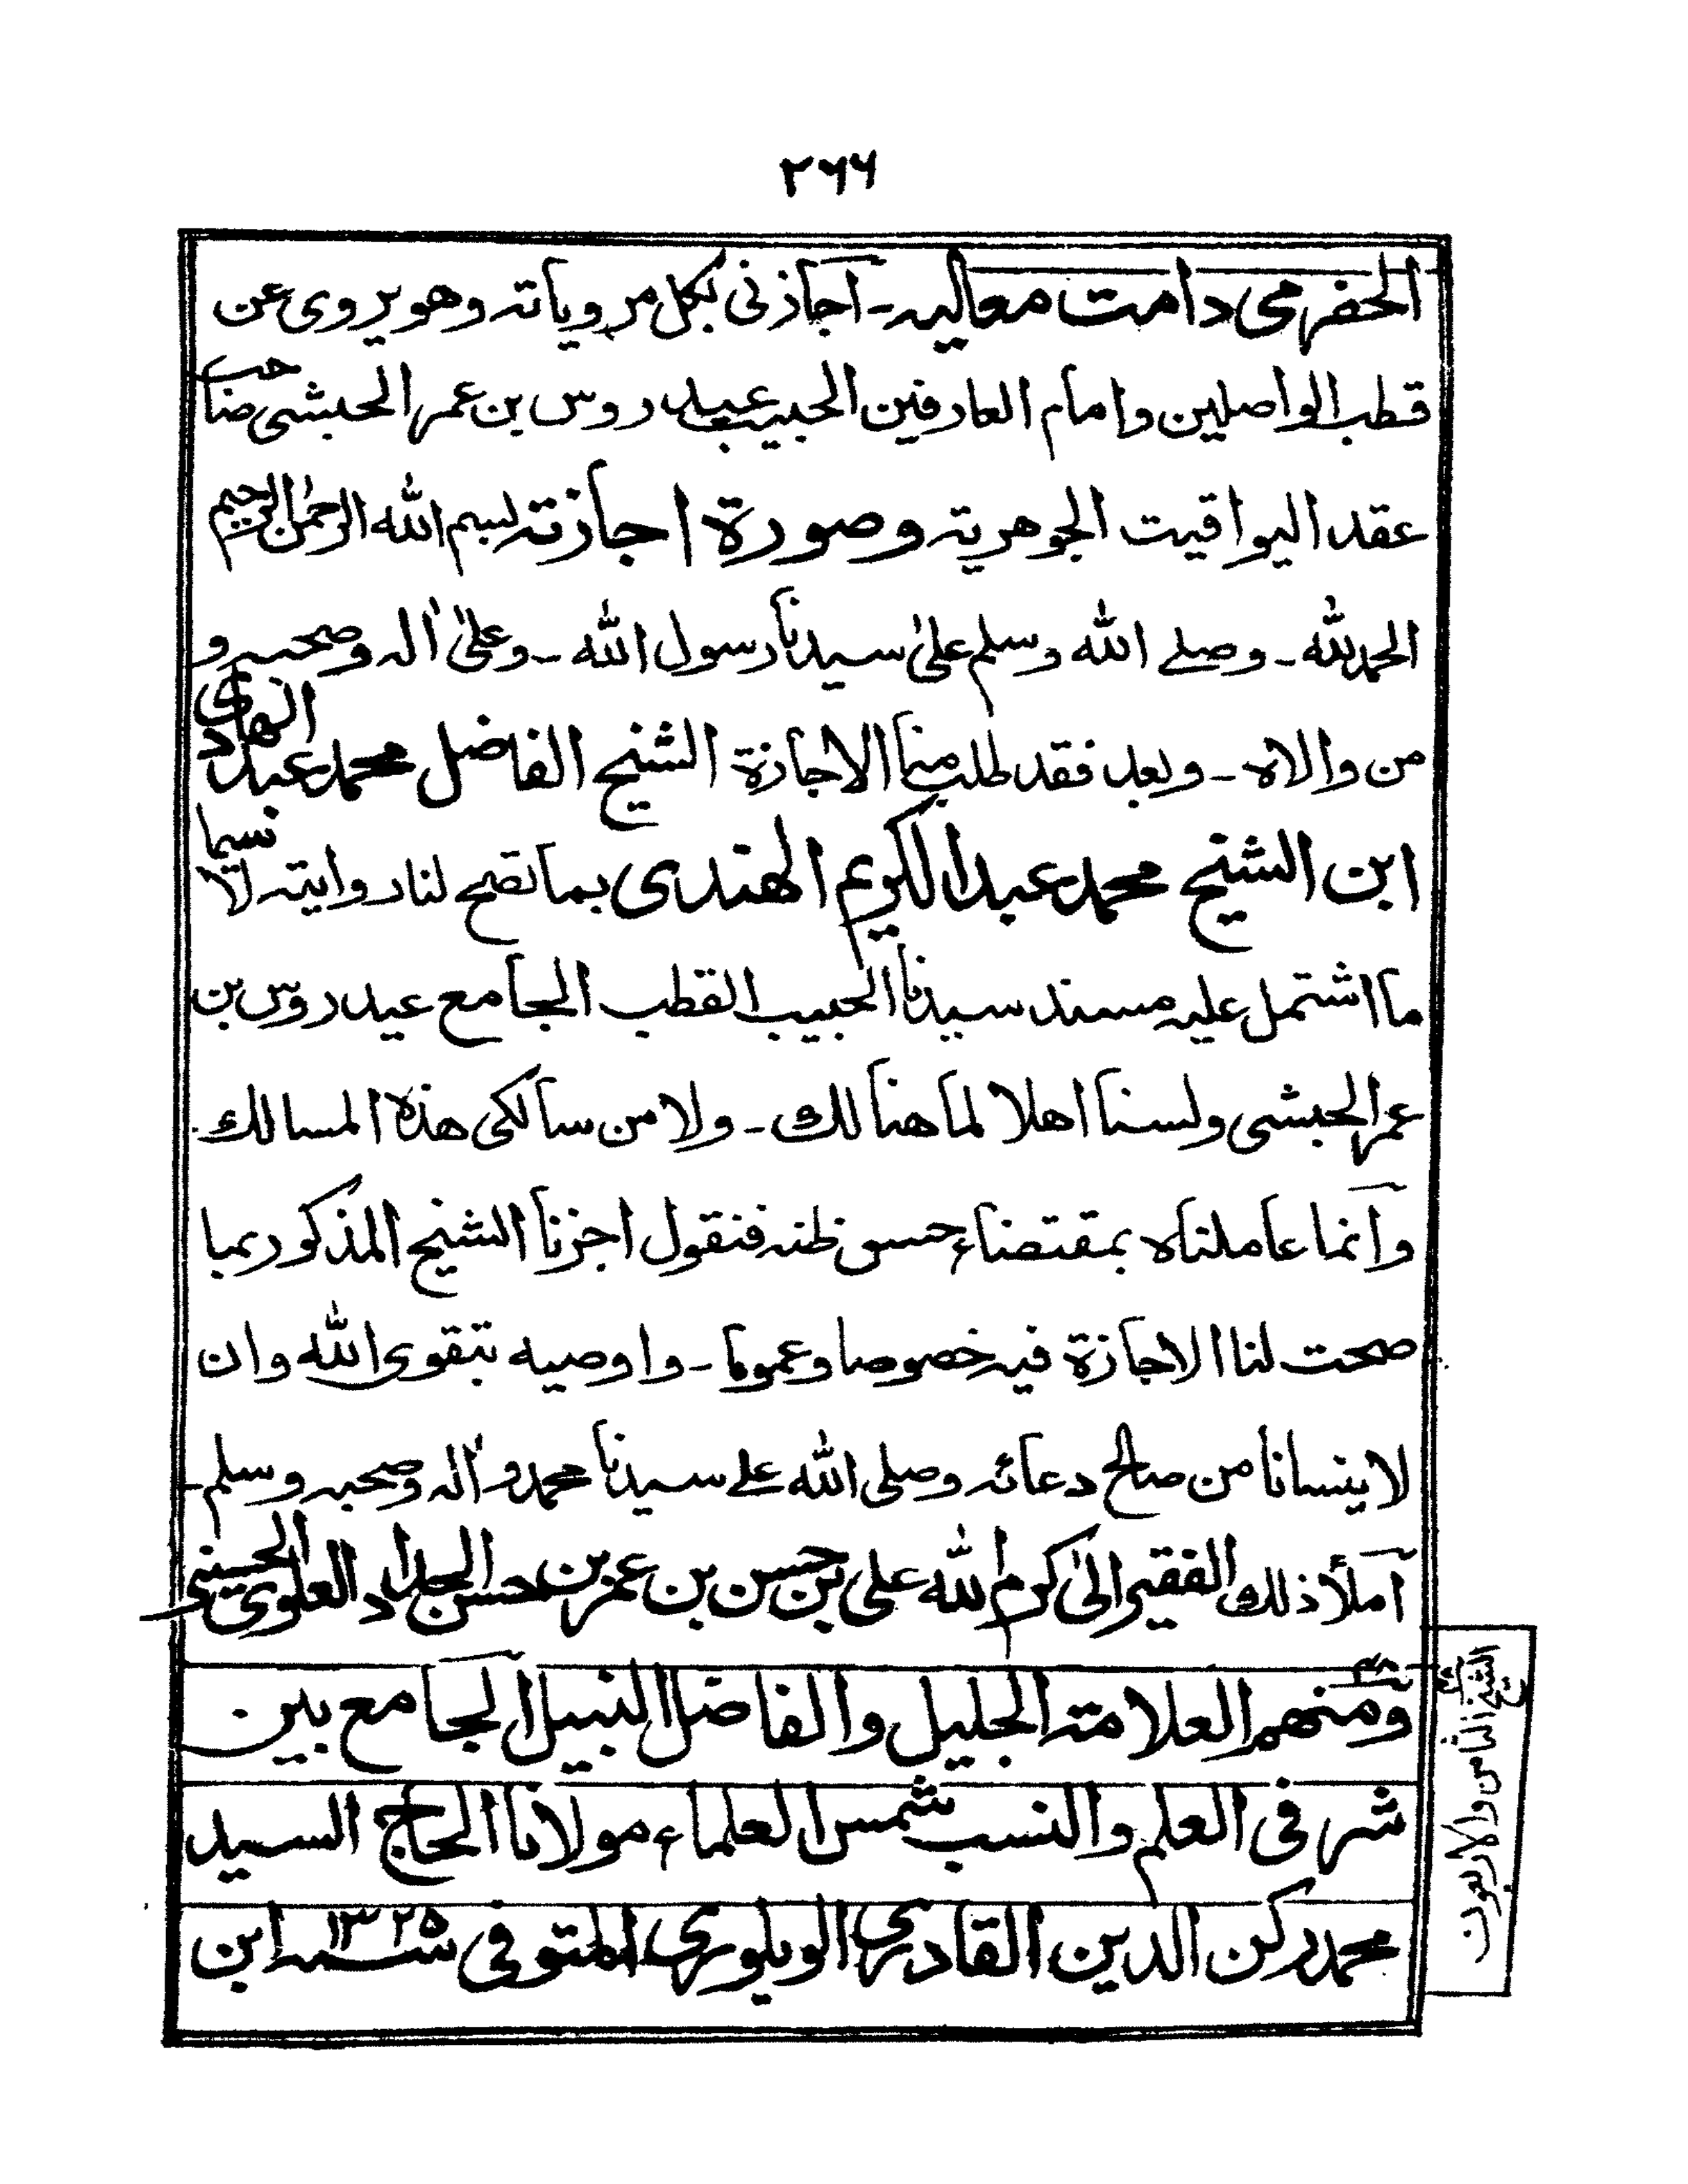 ٢٦٦
الحضرمي دامت معاليه ـ اجازنى بكل مروياته وهو يروى عن
قطب الواصلين وامام العارفين الحبيب عيدروس بن عمر الحبشى صاحب
عقد اليواقيت الجوهرية وصورة اجازته بسم الله الرحمن الرحيم
الحمد لله ـ وصلے الله وسلم علىٰ سيدنا رسول الله ـ وعلىٰ اٰله وصحبه و
من والاه ـ وبعد فقد طلب منا الاجازة الشيخ الفاضل محمد عبد الهادى
ابن الشيخ محمد عبد الكريم الهندى بما تصح لنا روايته لاسيما
ما اشتمل عليه مسند سيدنا الحبيب القطب الجامع عيدروس بن
عمر الحبشى ولسنا اهلا لما هنالك ـ ولا من سالكى هذه المسالك
وانما عاملناه بمقتضاء حسن ظنه فنقول اجزنا الشيخ المذكور بما
صحت لنا الاجازة فيه خصوصا وعموما ـ واوصيه بتقوى الله وان
لا ينسانا من صالح دعائه وصلى الله علے سيدنا محمد واٰله وصحبه وسلم ـ
آملأ ذلك الفقير الىٰ كرم الله على بن حسن بن عمر بن حسن الحداد العلوى الحسينى
ومنهم العلامة الجليل والفاضل النبيل الجامع بين
شرفى العلم والنسب شمس العلماء مولانا الحاج السيد
محمد ركن الدين القادرى الويلورى المتوفى سنه ١٣٢٥ ابن
الشيخ الثامن والاربعون